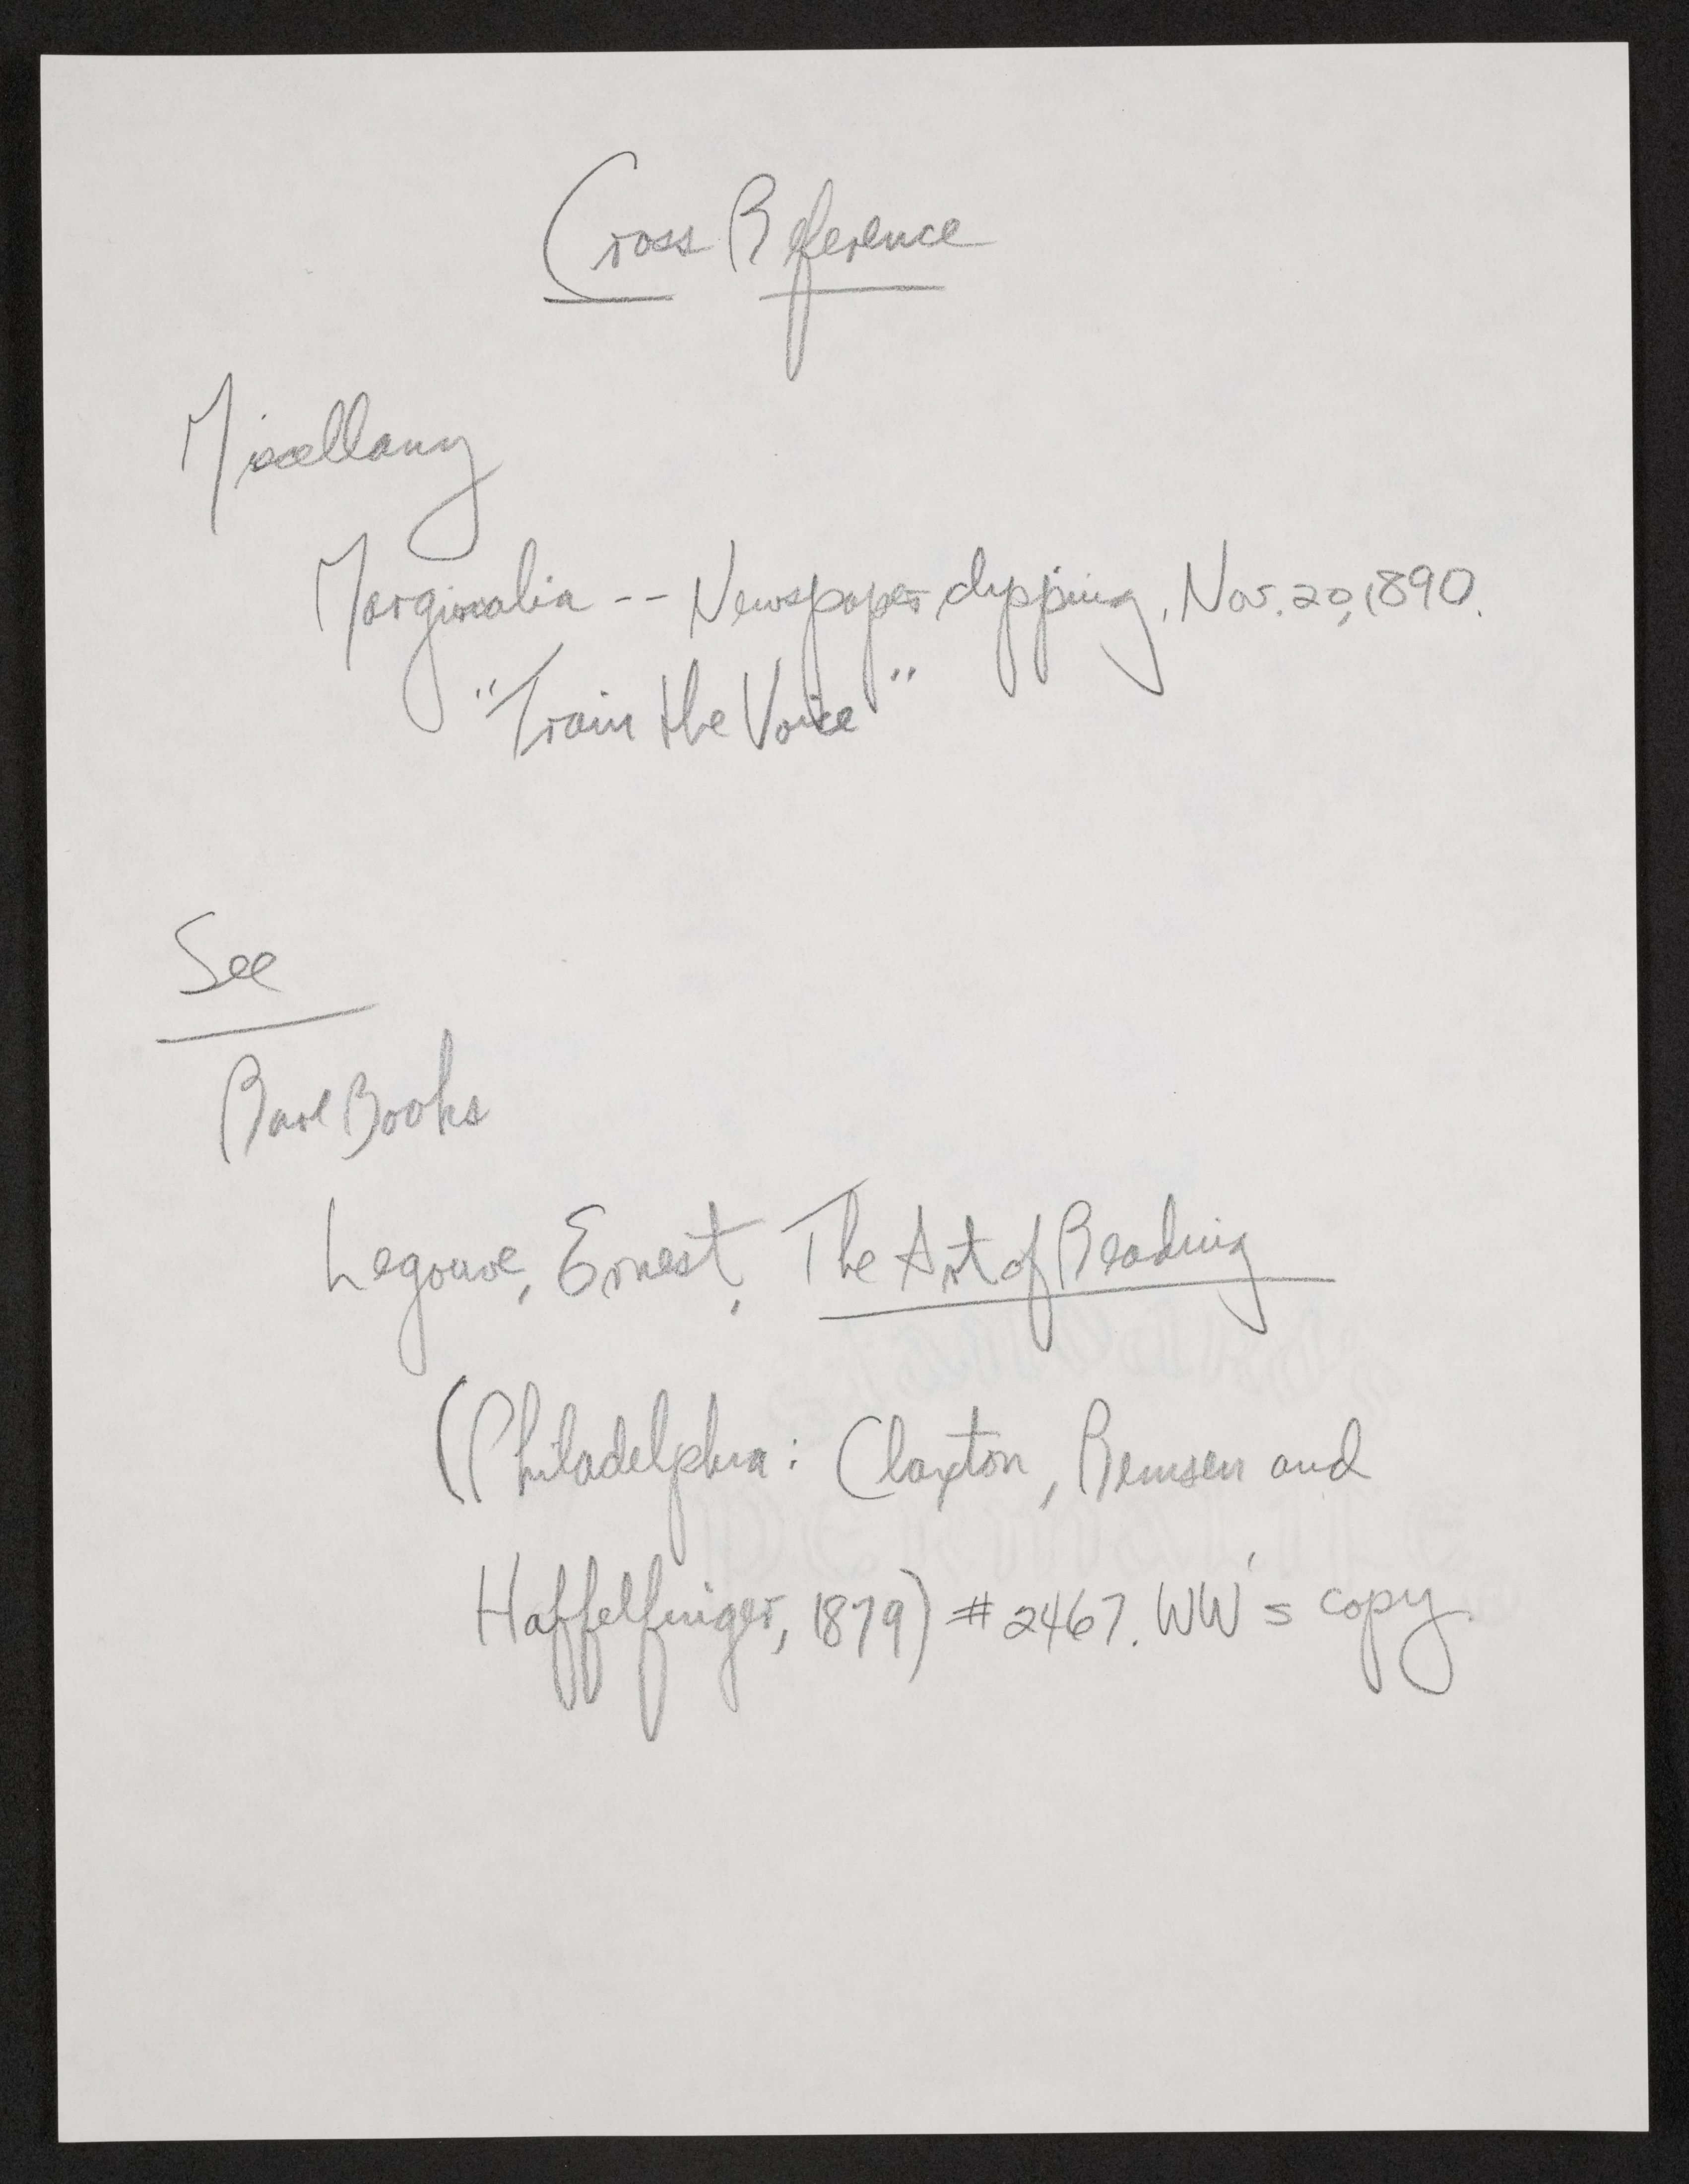 Cross Reference
Miscellany
Marginalia -- Newspaper clipping, Nov. 20, 1890.
"Train the Voice"
See
Rare Books
Legouve, Ernest, The Art of Reading
(Philadelphia: Claxton, Remsen and
Haffelfinger, 1879) #2467. WW's copy
permalife